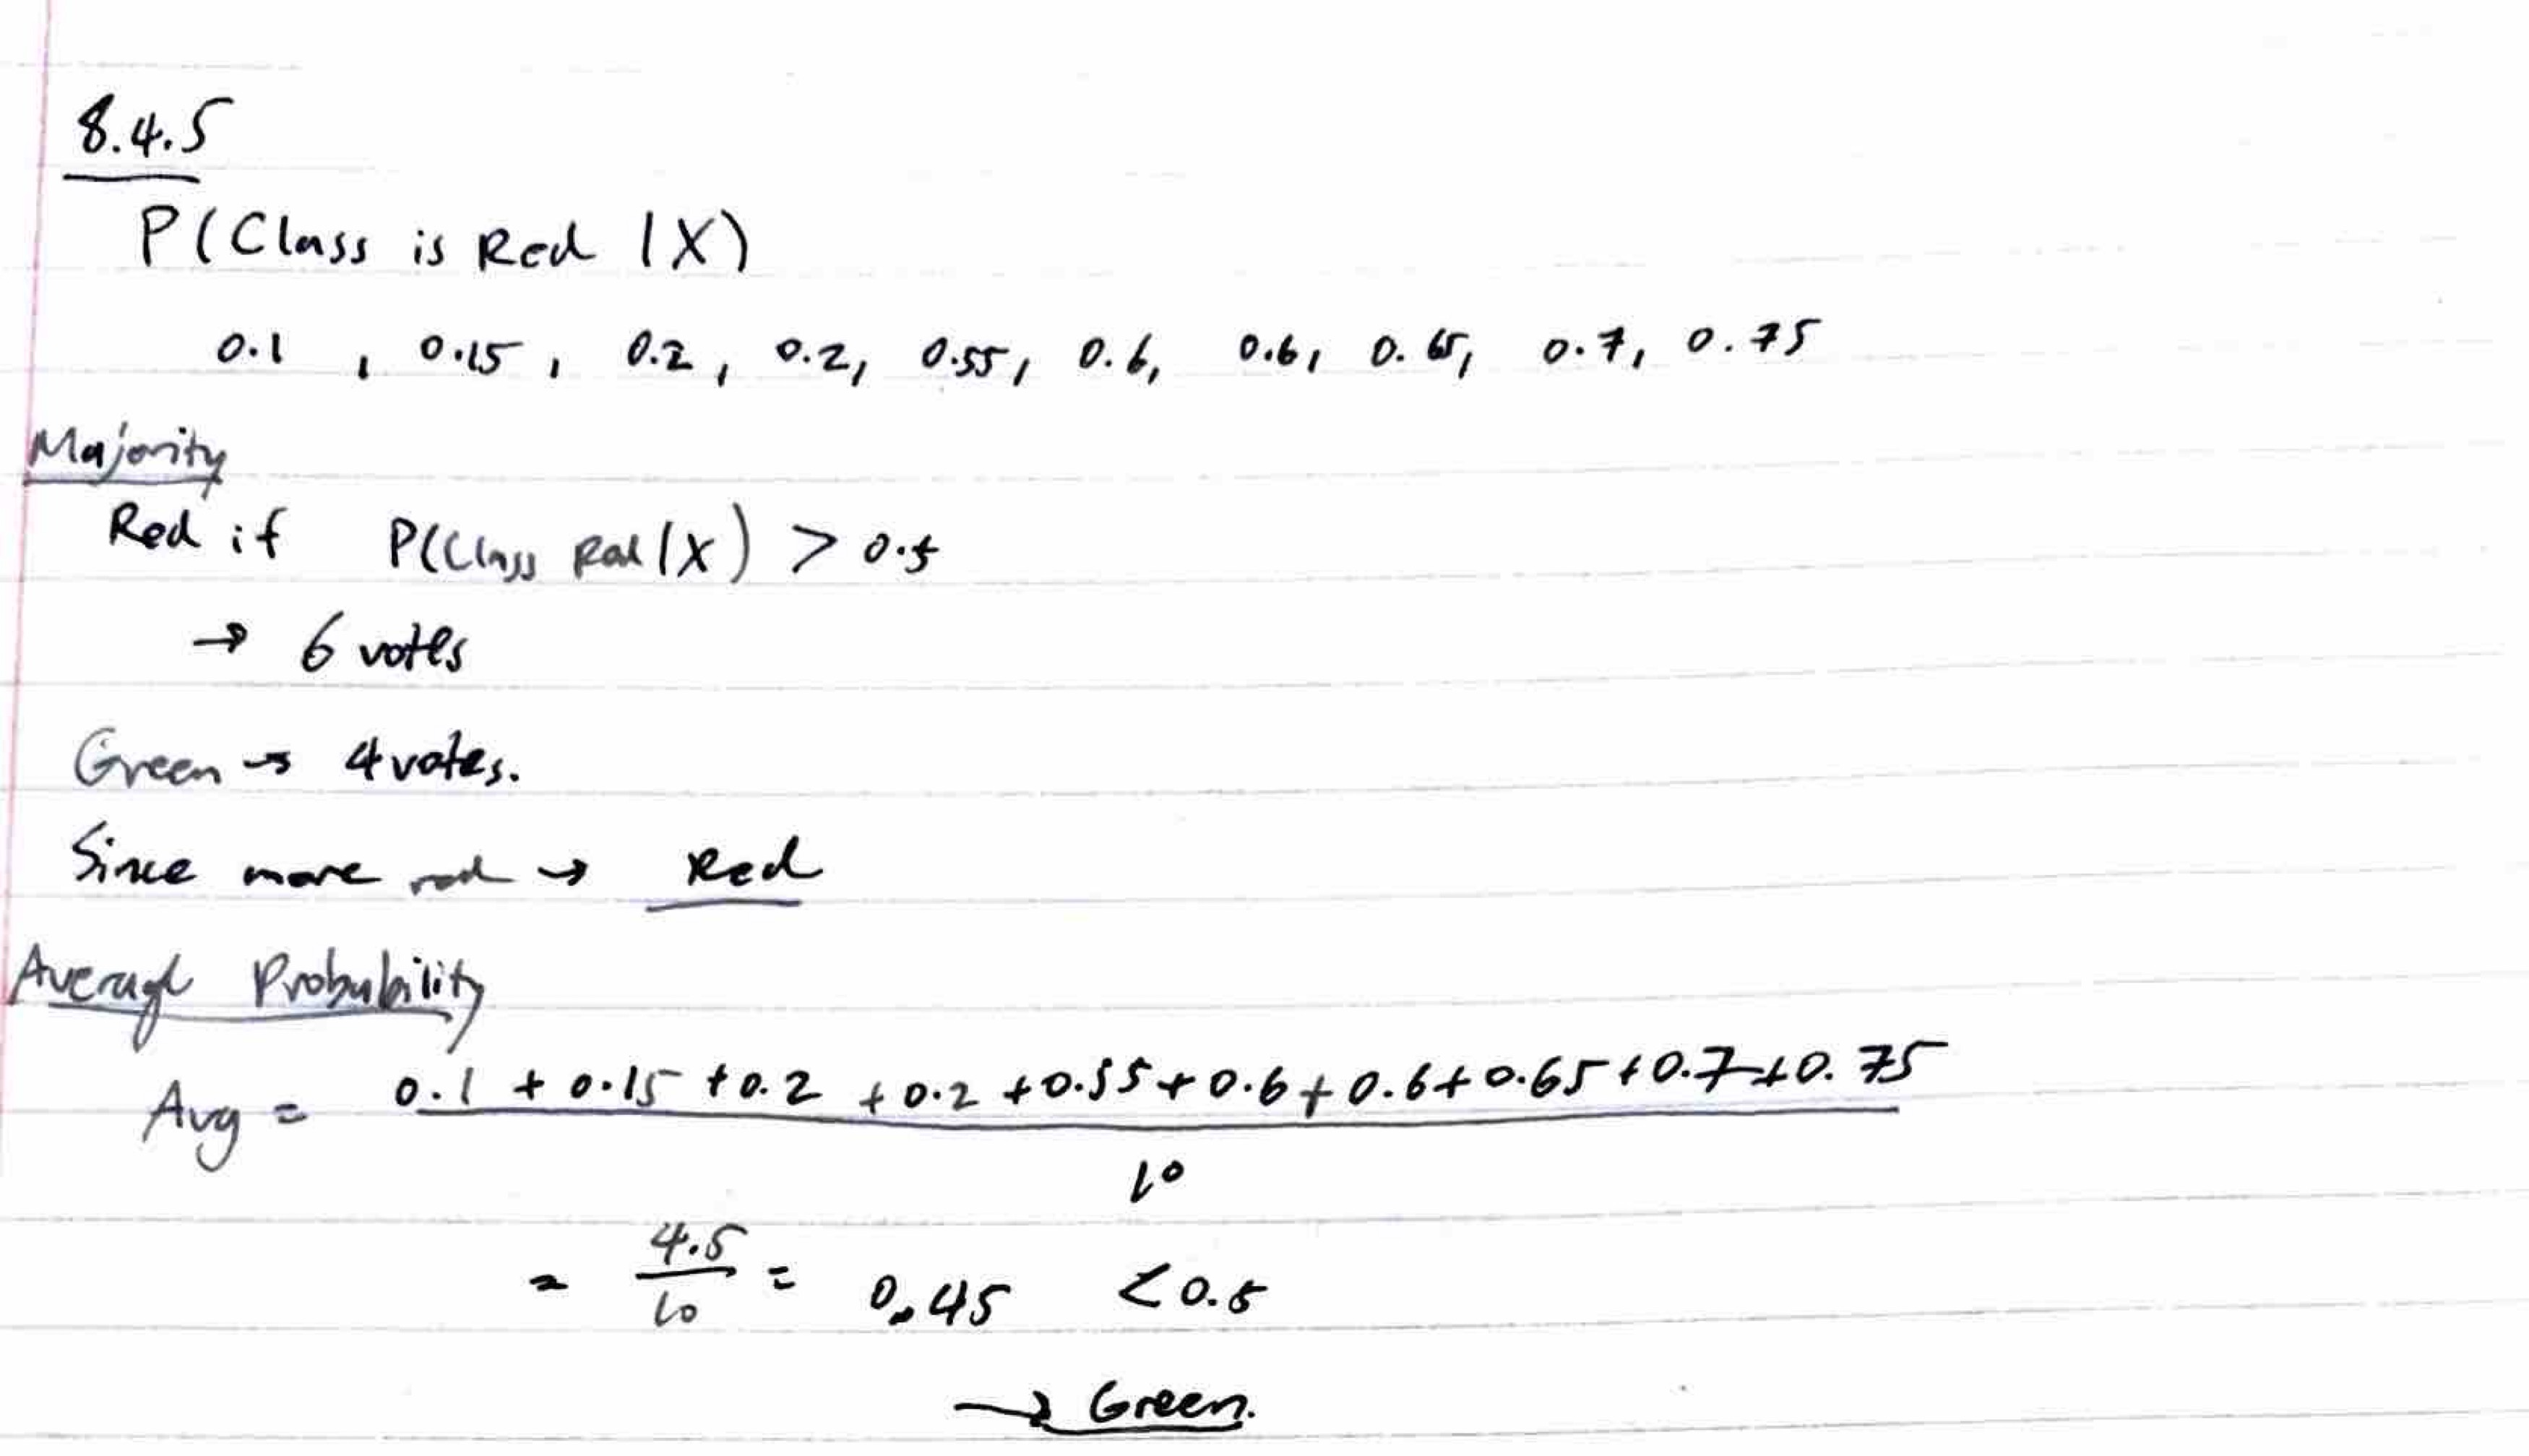 8.4.5
P(Class is Red | X)
0.1 , 0.15 , 0.2 , 0.2, 0.55, 0.6, 0.6, 0.65, 0.7, 0.75
Majority
Red if P(Class Red | X) > 0.5
→ 6 votes
Green → 4 votes.
Since more red → Red
Average Probability
Avg = 0.1 + 0.15 + 0.2 + 0.2 + 0.55 + 0.6 + 0.6 + 0.65 + 0.7 + 0.75
10
= 4.5/10 = 0.45 < 0.5
→ Green.